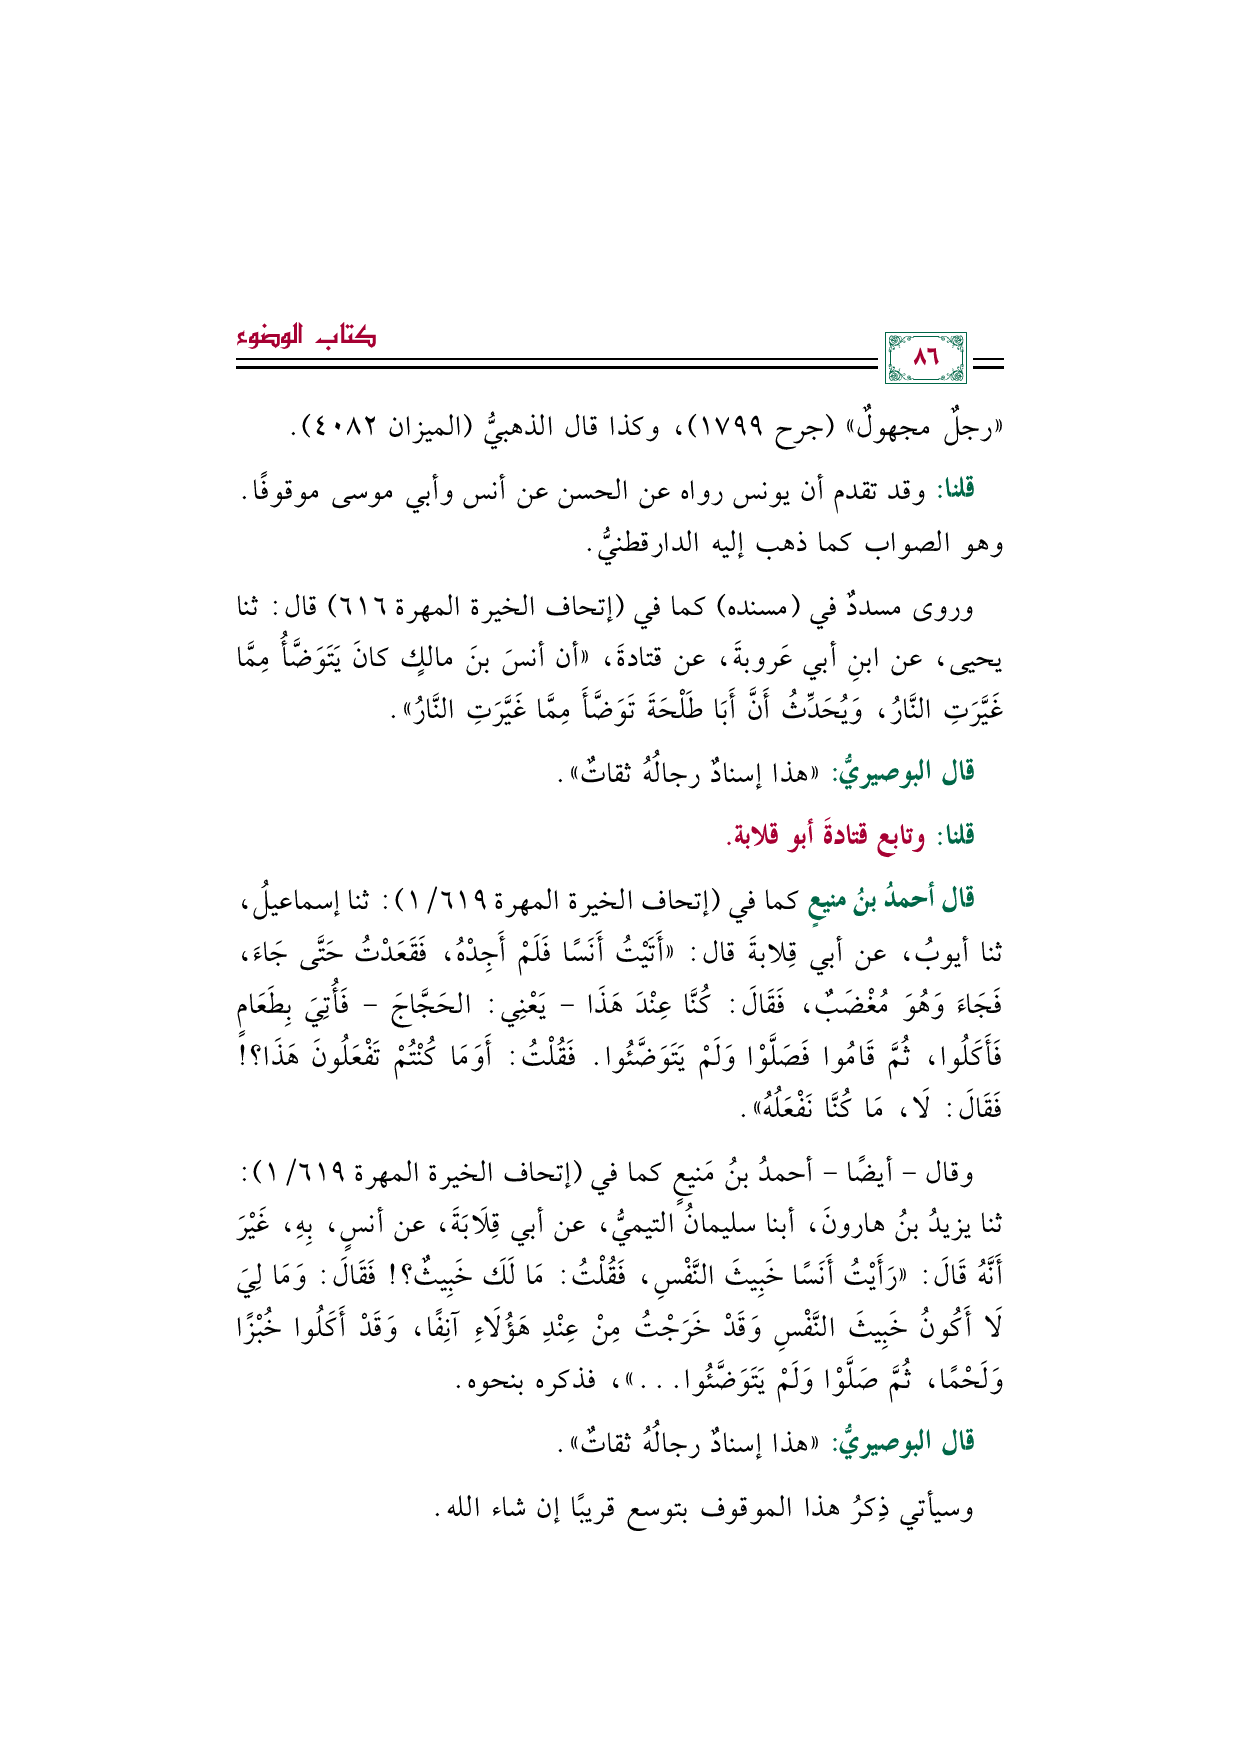 كتاب الوضوء
٨٦
«رجلٌ مجهولٌ» (جرح ١٧٩٩)، وكذا قال الذهبيُّ (الميزان ٤٠٨٢).
قلنا: وقد تقدم أن يونس رواه عن الحسن عن أنس وأبي موسى موقوفًا.
وهو الصواب كما ذهب إليه الدارقطنيُّ.
وروى مسددٌ في (مسنده) كما في (إتحاف الخيرة المهرة ٦١٦) قال: ثنا
يحيى، عن ابنِ أبي عَروبةَ، عن قتادةَ، «أن أنسَ بنَ مالكٍ كانَ يَتَوَضَّأُ مِمَّا
غَيَّرَتِ النَّارُ، وَيُحَدِّثُ أَنَّ أَبَا طَلْحَةَ تَوَضَّأَ مِمَّا غَيَّرَتِ النَّارُ».
قال البوصيريُّ: «هذا إسنادٌ رجالُهُ ثقاتٌ».
قلنا: وتابع قتادةَ أبو قلابة.
قال أحمدُ بنُ منيعٍ كما في (إتحاف الخيرة المهرة ٦١٩/ ١): ثنا إسماعيلُ،
ثنا أيوبُ، عن أبي قِلابةَ قال: «أَتَيْتُ أَنَسًا فَلَمْ أَجِدْهُ، فَقَعَدْتُ حَتَّى جَاءَ،
فَجَاءَ وَهُوَ مُغْضَبٌ، فَقَالَ: كُنَّا عِنْدَ هَذَا – يَعْنِي: الحَجَّاجَ – فَأُتِيَ بِطَعَامٍ
فَأَكَلُوا، ثُمَّ قَامُوا فَصَلَّوْا وَلَمْ يَتَوَضَّئُوا. فَقُلْتُ: أَوَمَا كُنْتُمْ تَفْعَلُونَ هَذَا؟!
فَقَالَ: لَا، مَا كُنَّا نَفْعَلُهُ».
وقال – أيضًا – أحمدُ بنُ مَنيعٍ كما في (إتحاف الخيرة المهرة ٦١٩/ ١):
ثنا يزيدُ بنُ هارونَ، أبنا سليمانُ التيميُّ، عن أبي قِلَابَةَ، عن أنسٍ، بِهِ، غَيْرَ
أَنَّهُ قَالَ: «رَأَيْتُ أَنَسًا خَبِيثَ النَّفْسِ، فَقُلْتُ: مَا لَكَ خَبِيثٌ؟! فَقَالَ: وَمَا لِيَ
لَا أَكُونُ خَبِيثَ النَّفْسِ وَقَدْ خَرَجْتُ مِنْ عِنْدِ هَؤُلَاءِ آنِفًا، وَقَدْ أَكَلُوا خُبْزًا
وَلَحْمًا، ثُمَّ صَلَّوْا وَلَمْ يَتَوَضَّئُوا. . .»، فذكره بنحوه.
قال البوصيريُّ: «هذا إسنادٌ رجالُهُ ثقاتٌ».
وسيأتي ذِكرُ هذا الموقوف بتوسع قريبًا إن شاء الله.